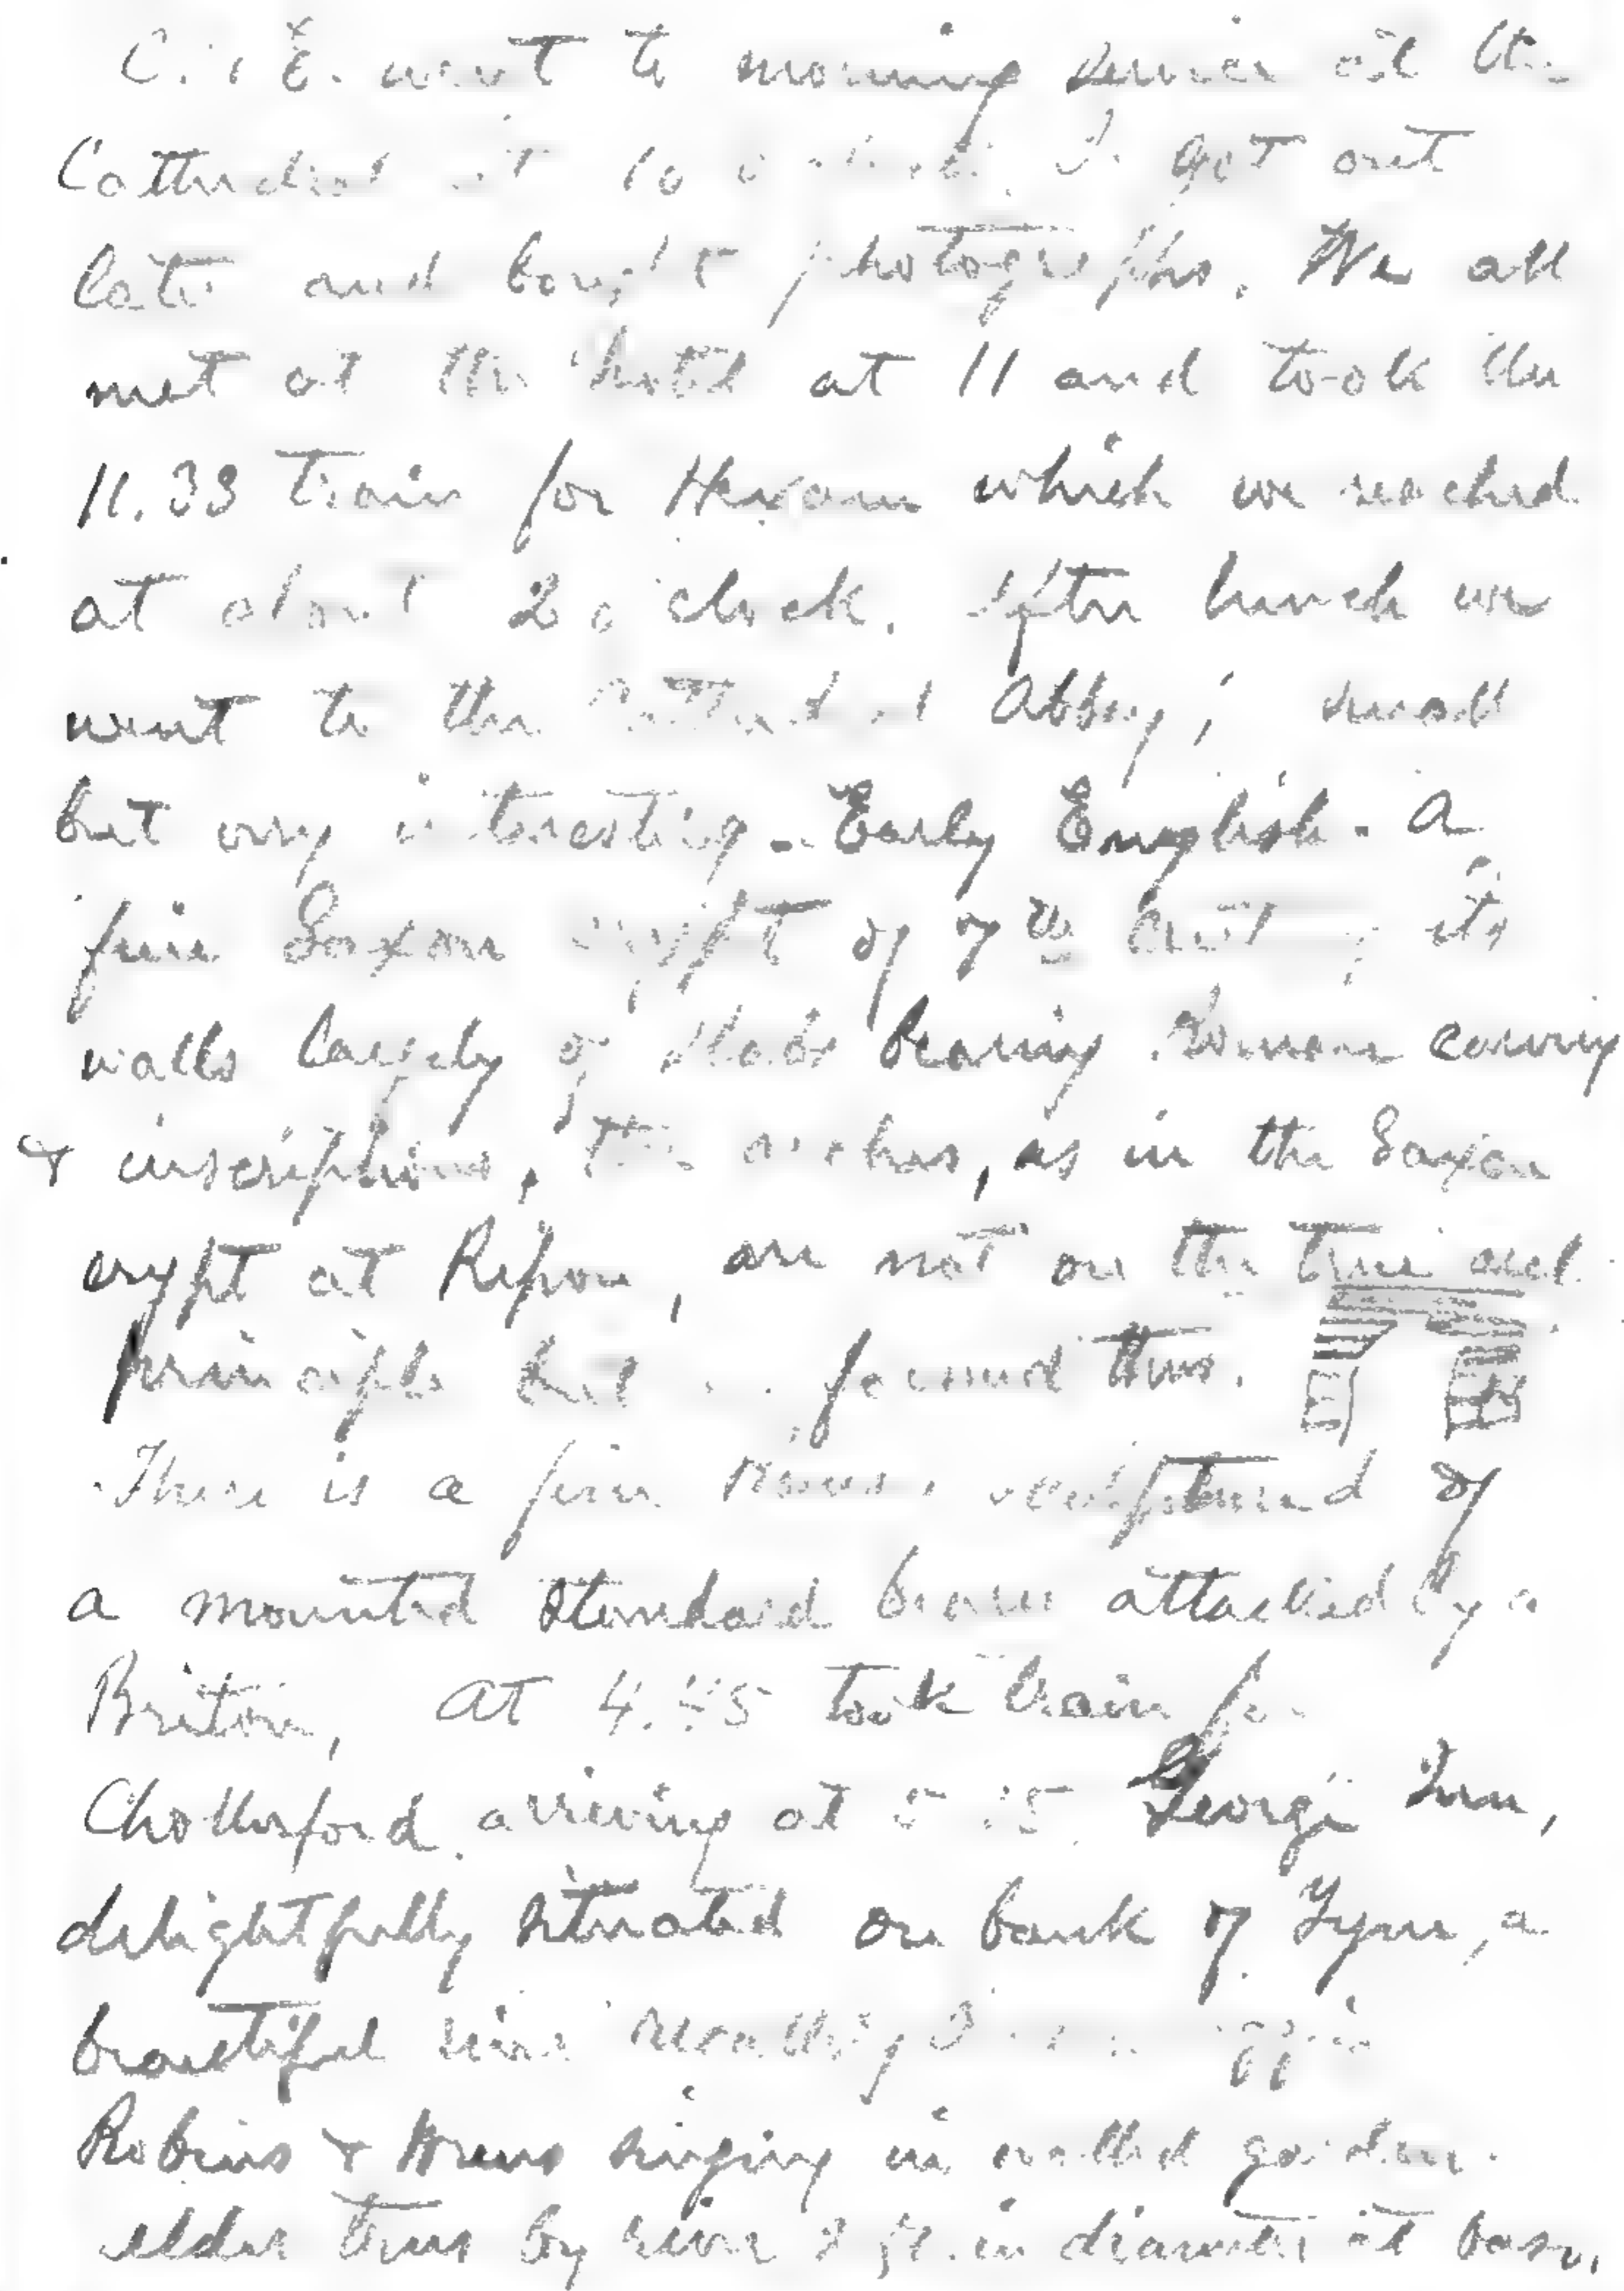 C. & E. went to morning service at the
Cathedral at 10 o'clock. I got out
later and bought photographs. We all
met at the hotel at 11 and took the
11.33 train for Hexam which we reached
at about 2 o'clock. After lunch we
went to the Cathedral Abbey; small
but very interesting - Early English. A
fine Saxon crypt of 7th cent, its
walls largely of slabs bearing Roman carving
& inscriptions, the arches, as in the Saxon
crypt at Ripon, are not on the true arch
principle but formed thus.
There is a fine Roman sculptured of
a mounted standard bearer attacked by a
Briton, At 4.45 took train for
Chollerford arriving at 5.15. George Inn,
delightfully situated on bank of Tyne, a
beautiful river
Robins & Wrens singing in walled garden.
alder trees by river 2 ft. in diameter at base.